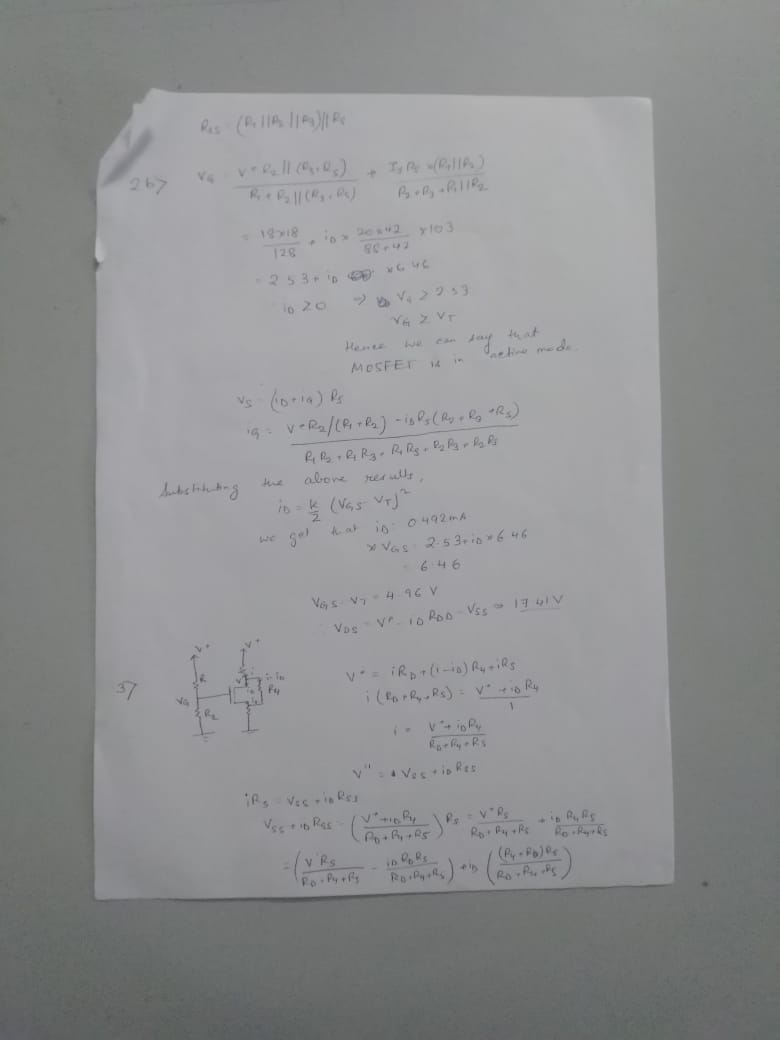 RSS = (R1 || R2 || R3) || RS
2b) VG = V+ R2 || (R3+RS) / R1 + R2 || (R3+RS) + ID RS × (R1||R2) / R2 + R3 + R1||R2
= 18×18 / 128 + iD × 20×42 / 88+42 × 103
= 2.53 + iD × 6.46
iD ≥ 0 ⇒ VG > 2.53
VG ≥ VT
Hence we can say that
MOSFET is in active mode.
VS = (iD+iG) RS
iG = V+R2/(R1+R2) - iDRS(R2+R3+RS) / R1R2 + R1R3 + R1RS + R2R3 + R2RS
Substituting the above results,
iD = k/2 (VGS - VT)²
we get that iD = 0.492mA
VGS = 2.53 + iD × 6.46
= 6.46
VGS - VT = 4.96 V
∴ VDS = V+ - iD RDD - VSS = 17.41V
3)
V+ V+
R i i-iD
VG R4
R2
V+ = iRD + (i-iD) R4 + iRS
i (RD+R4+RS) = V+ + iD R4 / 1
i = V+ + iDR4 / RD+R4+RS
V" = VSS + iD RSS
iRS = VSS + iD RSS
VSS + iD RSS = (V+ + iD R4 / RD+R4+RS) RS = V+RS / RD+R4+RS + iD R4RS / RD+R4+RS
= (V+RS / RD+R4+RS - iD RDRS / RD+R4+RS) + iD ((R4+RD)RS / RD+R4+RS)